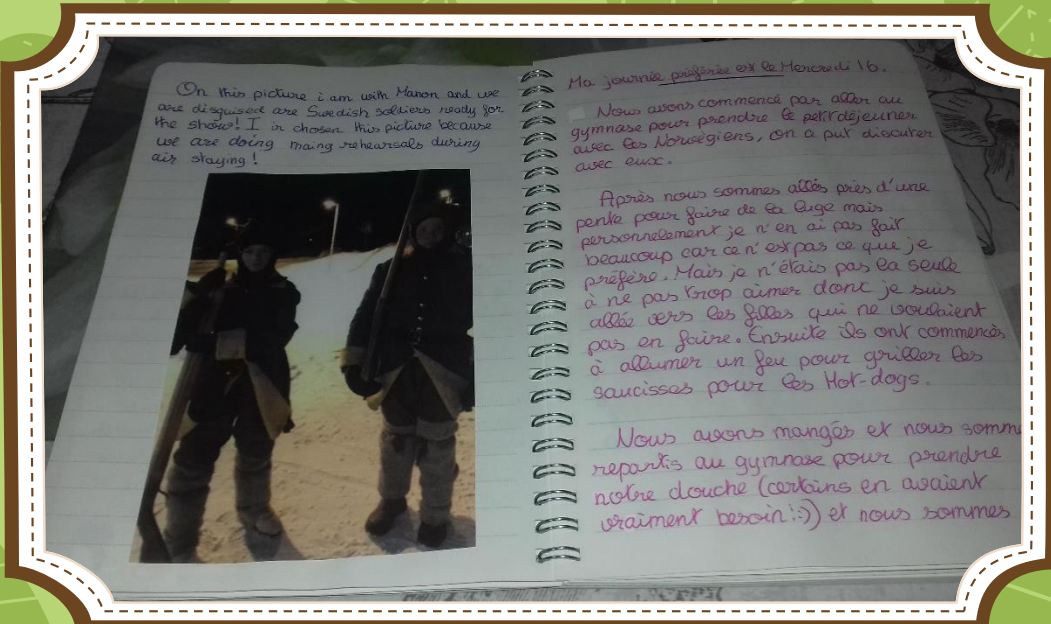 On this picture i am with Manon and we
are disguised are Swedish soldiers ready for
the show! I in chosen this picture because
we are doing maing rehearsals during
air staying!
Ma journée préférée est le Mercredi 16.
Nous avons commencé par aller au
gymnase pour prendre le petit déjeuner
avec les Norvégiens, on a put discuter
avec eux.
Après nous sommes allés près d'une
pente pour faire de la luge mais
personnelement je n'en ai pas fait
beaucoup car ce n'est pas ce que je
préfère. Mais je n'étais pas la seule
à ne pas trop aimer dont je suis
allée vers les filles qui ne voulaient
pas en faire. Ensuite ils ont commencés
à allumer un feu pour griller les
saucisses pour les Hot-dogs.
Nous avons mangés et nous somme
repartis au gymnase pour prendre
notre douche (certains en avaient
vraiment besoin!:-)) et nous sommes